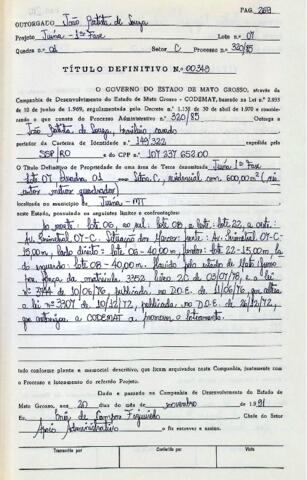 PAG. 269
OUTORGADO João Batista de Souza
Projeto Juína - 1ª Fase Lote nº 07
Quadra nº 01 Setor C Processo nº 320/85
TÍTULO DEFINITIVO Nº 00348
O GOVERNO DO ESTADO DE MATO GROSSO, através da
Companhia de Desenvolvimento do Estado de Mato Grosso - CODEMAT, baseado na Lei nº 2.895
de 10 de junho de 1.969, regulamentada pelo Decreto n.º 1.138 de 30 de abril de 1.970 e considerando
o que consta do Processo Administrativo nº 320/85 Outorga a
João Batista de Souza, brasileiro, casado
portador da Carteira de Identidade nº 149.322 expedida pelo
SSP/RO e do CPF nº 107 237 652 00
O Título Definitivo de Propriedade de uma área de Terra denominada Juína 1ª Fase
lote 07 Quadra 01 Setor C, residencial com 600,00 m²
localizada no município de Juína - MT
neste Estado, possuindo os seguintes limites e confrontações:
lote 06, ao sul: lote 08, a leste: lote 22, a oeste:
Av. 07-C.
15,00m, lado direito: lote 06 - 40,00m, fundos: lote 22 - 15,00m, lado
esquerdo: lote 08 - 40,00m. Havido pelo estado de Mato Grosso
por força da matrícula 3352 de 03/07/78, a lei
nº de 10/06/76, publicada no D.O.E. de 11/06/76, que altera
a lei nº 3307 de 18/12/72, publicada no D.O.E. de 26/12/72,
que autoriza a CODEMAT a promover o loteamento.
tudo conforme planta e memorial descritivo, que ficam arquivados nesta Companhia, juntamente com
o Processo e loteamento do referido Projeto.
Dada e passada na Companhia de Desenvolvimento do Estado de
Mato Grosso, aos 20 dias do mês de novembro de 1991
Eu, de Campos Figueiredo Chefe do Setor
Apoio Administrativo o fiz escrever e assino.
Transcrito por Conferido por Visto